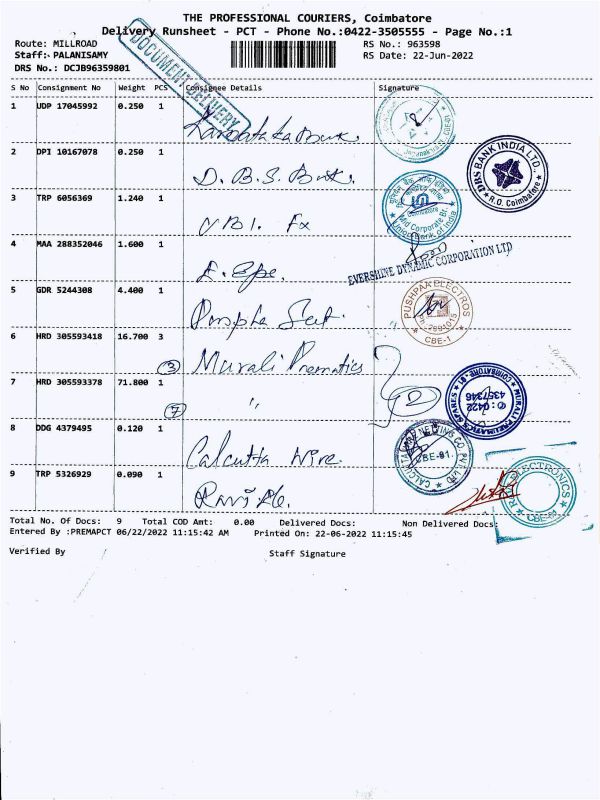 THE PROFESSIONAL COURIERS, Coimbatore
Delivery Runsheet - PCT - Phone No.:0422-3505555 - Page No.:1
Route: MILLROAD
RS No.: 963598
Staff: PALANISAMY
RS Date: 22-Jun-2022
DRS No.: DCJB96359801
DOCUMENT DELIVERY
S No Consignment No Weight PCS Consignee Details Signature
1 UDP 17045992 0.250 1
Karnataka Bank.
2 DPI 10167078 0.250 1
D.B.S. Bank.
DBS BANK INDIA LTD.
R.O. Coimbatore
3 TRP 6056369 1.240 1
Union Bank of India
4 MAA 288352046 1.600 1
EVERSHINE DYNAMIC CORPORATION LTD
5 GDR 5244308 4.400 1
PUSHPAA ELECTROS
CBE-1
6 HRD 305593418 16.700 3
3 Murali Pnematics
7 HRD 305593378 71.800 1
7 "
MURALI PNEUMATICS SPARES
COIMBATORE
0422
4357346
8 DDG 4379495 0.120 1
Calcutta wire.
CALCUTTA NETTING CO. PVT. LTD
CBE-01.
9 TRP 5326929 0.090 1
ELECTRONICS
CBE-01
Total No. Of Docs: 9 Total COD Amt: 0.00 Delivered Docs: Non Delivered Docs:
Entered By :PREMAPCT 06/22/2022 11:15:42 AM Printed On: 22-06-2022 11:15:45
Verified By Staff Signature